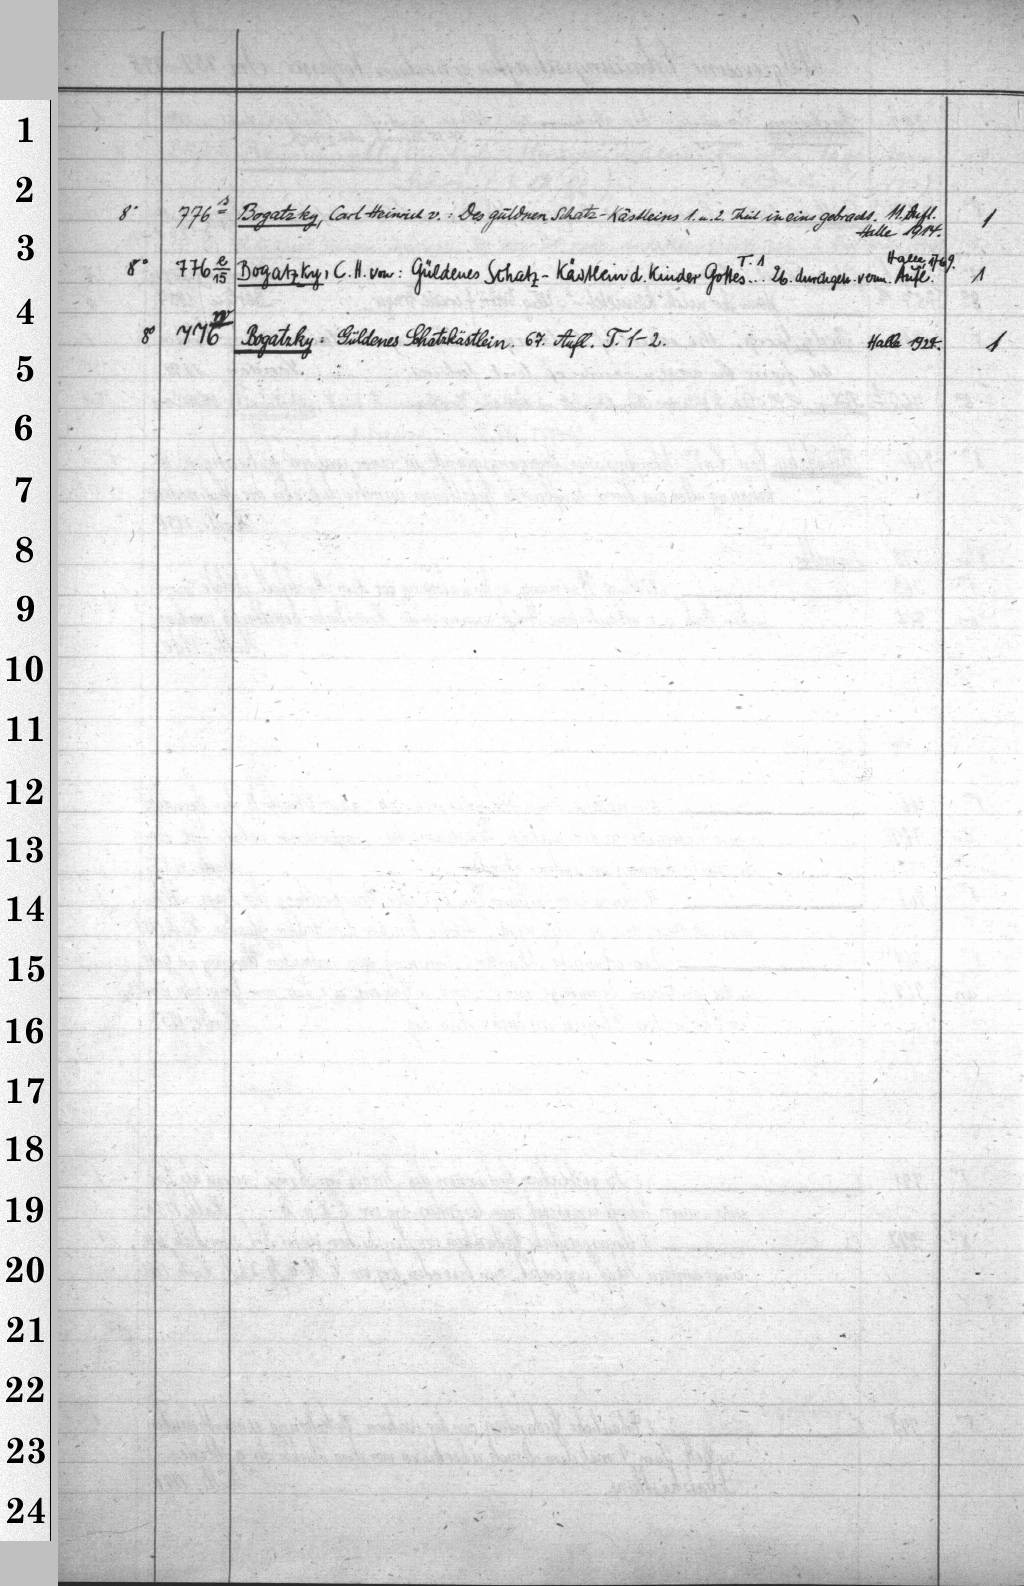 1
2
8° 776 s Bogatzky, Carl Heinrich v.: Des güldnen Schatz-Kästleins 1. u. 2. Theil in eins gebracht. 11. Aufl.
Halle 1914.
3
8° 776 e/15 Bogatzky, C. H. von: Güldenes Schatz-Kästlein d. Kinder Gottes... T. 1 26. durchges. verm. Aufl. Halle 1769. 1
4
8° 776 Bogatzky: Güldenes Schatzkästlein. 67. Aufl. T. 1-2. Halle 1924. 1
5
6
7
8
9
10
11
12
13
14
15
16
17
18
19
20
21
22
23
24